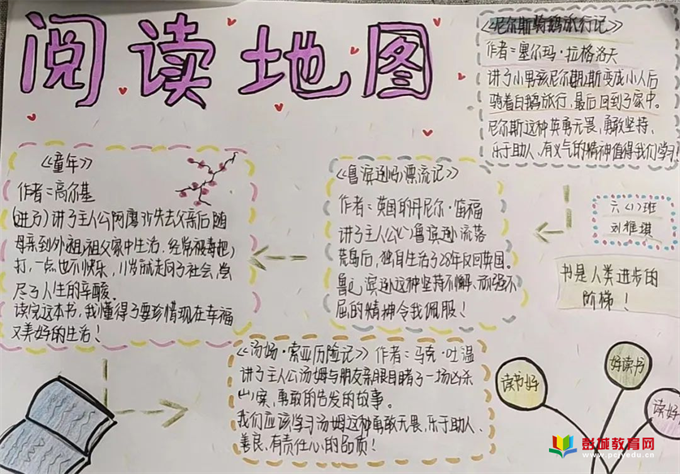 阅读地图
《尼尔斯骑鹅旅行记》
作者:塞尔玛·拉格洛夫
讲了小男孩尼尔斯变成小人后
骑着白鹅旅行,最后回到了家中。
尼尔斯这种英勇无畏、勇敢坚持、
乐于助人、有义气的精神值得我们学习
《童年》
作者:高尔基
讲了主人公阿廖沙失去父亲后随
母亲到外祖祖父家中生活,经常被毒打
打,一点也不快乐,11岁就走向了社会,尝
尽了人生的辛酸。
读完这本书,我懂得了要珍惜现在幸福
又美好的生活!
《鲁滨逊漂流记》
作者:英国的丹尼尔·笛福
讲了主人公鲁滨逊流落
荒岛后,独自生活了28年又回英国。
鲁滨逊这种坚持不懈、顽强不
屈的精神令我佩服!
六(1)班
刘雅琪
书是人类进步的
阶梯!
《汤姆·索亚历险记》作者:马克·吐温
讲了主人公汤姆与朋友亲眼目睹了一场凶杀
案,勇敢的告发的故事。
我们应该学习汤姆这种勇敢无畏、乐于助人、
善良、有责任心的品质!
读书好
好读书
读好
彭城教育网
www.pcjyedu.cn